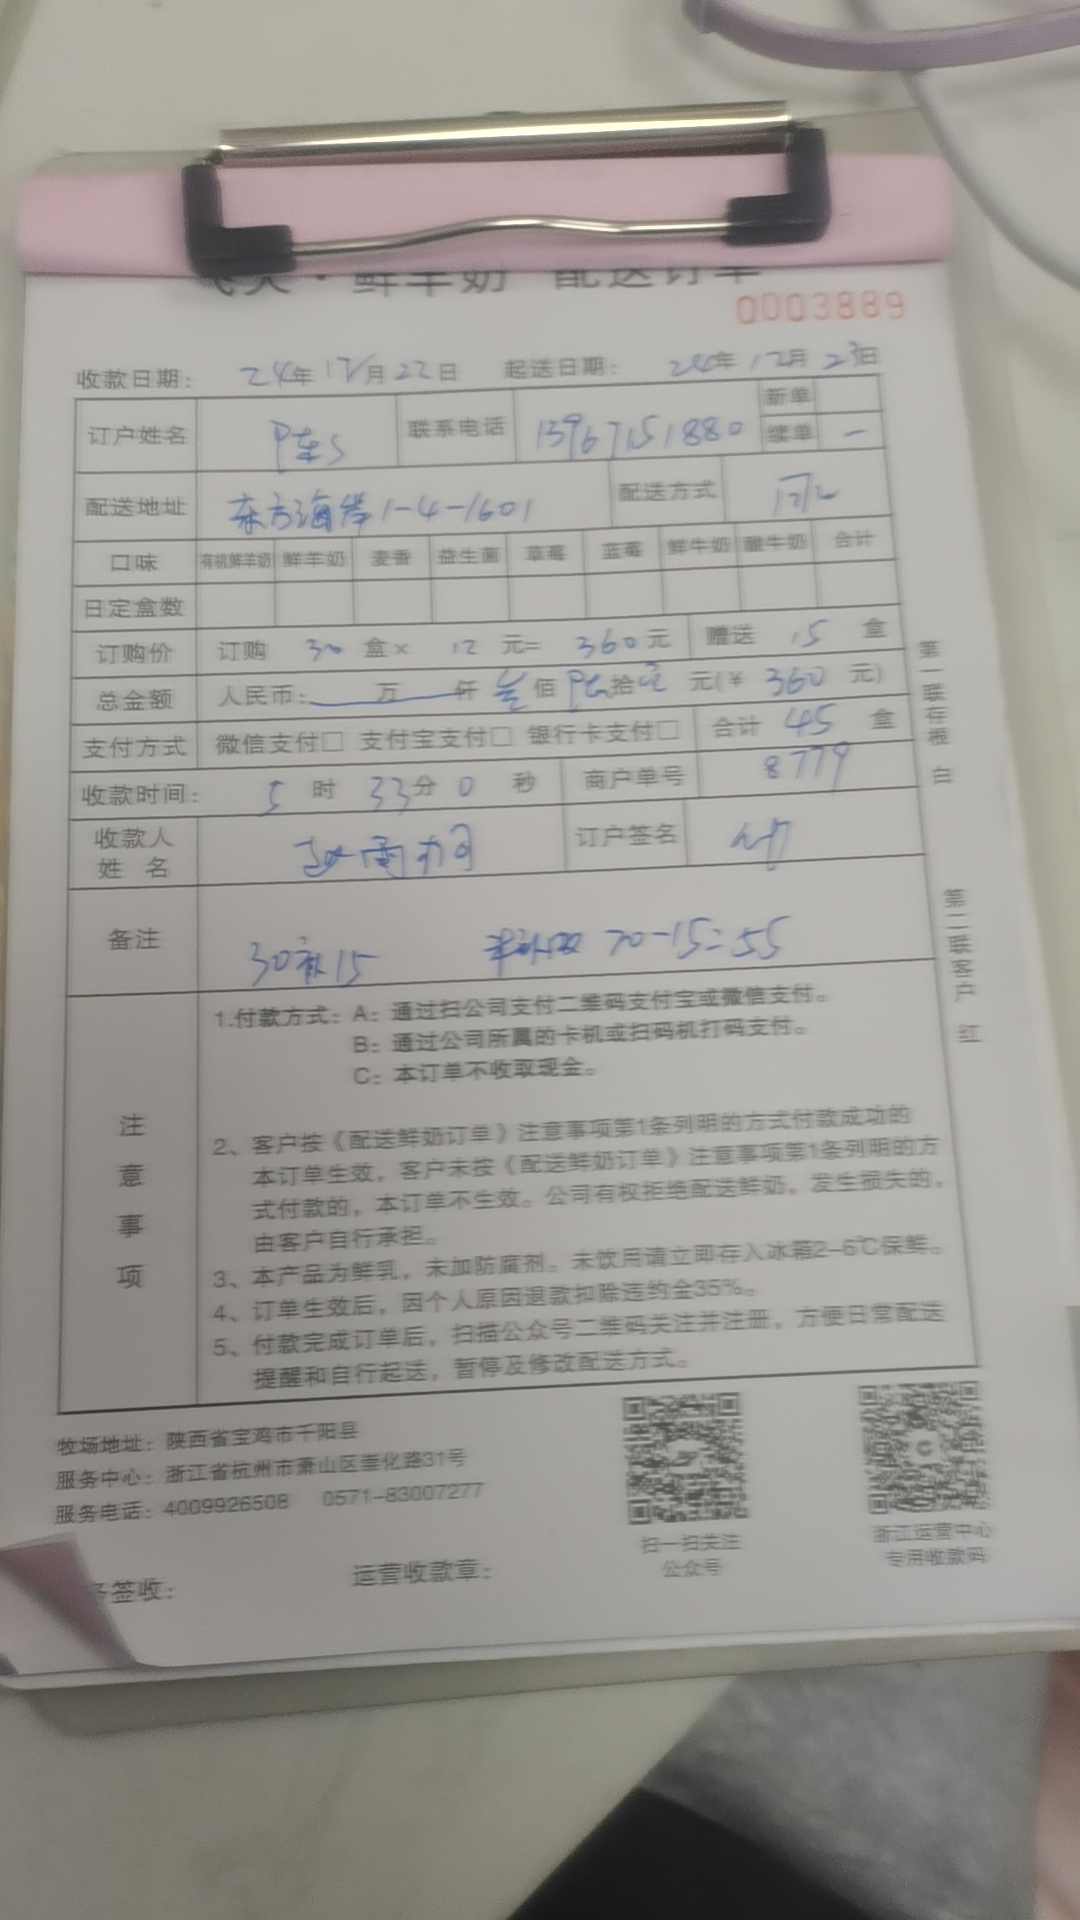 ·鲜羊奶 配送订单
0003889
收款日期: 24年12月22日 起送日期: 24年12月23日
订户姓名 陈S 联系电话 13967151880 新单
续单 一
配送地址 东方海岸1-4-1601 配送方式
口味 有机鲜羊奶 鲜羊奶 麦香 益生菌 草莓 蓝莓 鲜牛奶 酸牛奶 合计
日定盒数
订购价 订购 30 盒× 12 元= 360元 赠送 15 盒
总金额 人民币: 万 仟 叁佰 陆拾 元(¥ 360 元)
支付方式 微信支付□ 支付宝支付□ 银行卡支付□ 合计 45 盒
收款时间: 5 时 33分 0 秒 商户单号 8779
收款人
姓 名
订户签名
备注 30补15 70-15=55
注意事项
1.付款方式: A: 通过扫公司支付二维码支付宝或微信支付。
B: 通过公司所属的卡机或扫码机打码支付。
C: 本订单不收取现金。
2、客户按《配送鲜奶订单》注意事项第1条列明的方式付款成功的
本订单生效, 客户未按《配送鲜奶订单》注意事项第1条列明的方
式付款的, 本订单不生效。公司有权拒绝配送鲜奶, 发生损失的,
由客户自行承担。
3、本产品为鲜乳, 未加防腐剂。未饮用请立即存入冰箱2-6℃保鲜。
4、订单生效后, 因个人原因退款扣除违约金35%。
5、付款完成订单后, 扫描公众号二维码关注并注册, 方便日常配送
提醒和自行起送, 暂停及修改配送方式。
第一联存根 白
第二联客户 红
牧场地址: 陕西省宝鸡市千阳县
服务中心: 浙江省杭州市萧山区崇化路31号
服务电话: 4009926508 0571-83007277
扫一扫关注
公众号
浙江运营中心
专用收款码
签收:
运营收款章: